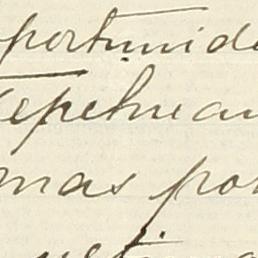 portunid
Tepehuan
mas por